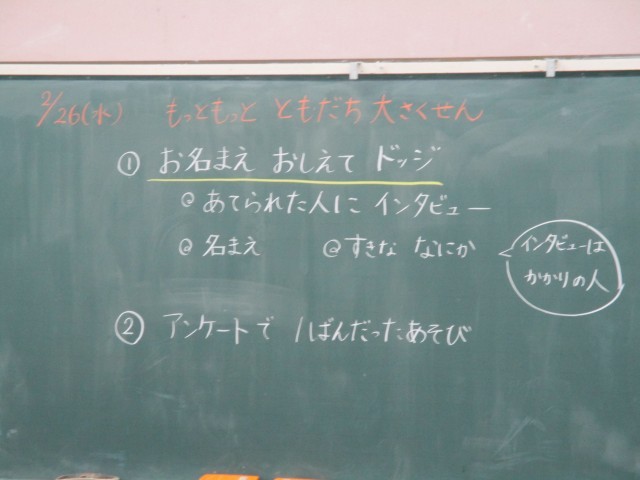 2/26(水) もっともっと ともだち 大さくせん
① お名まえ おしえて ドッジ
@ あてられた人に インタビュー
@ 名まえ @ すきな なにか
インタビューは
かかりの人
② アンケートで 1ばんだったあそび